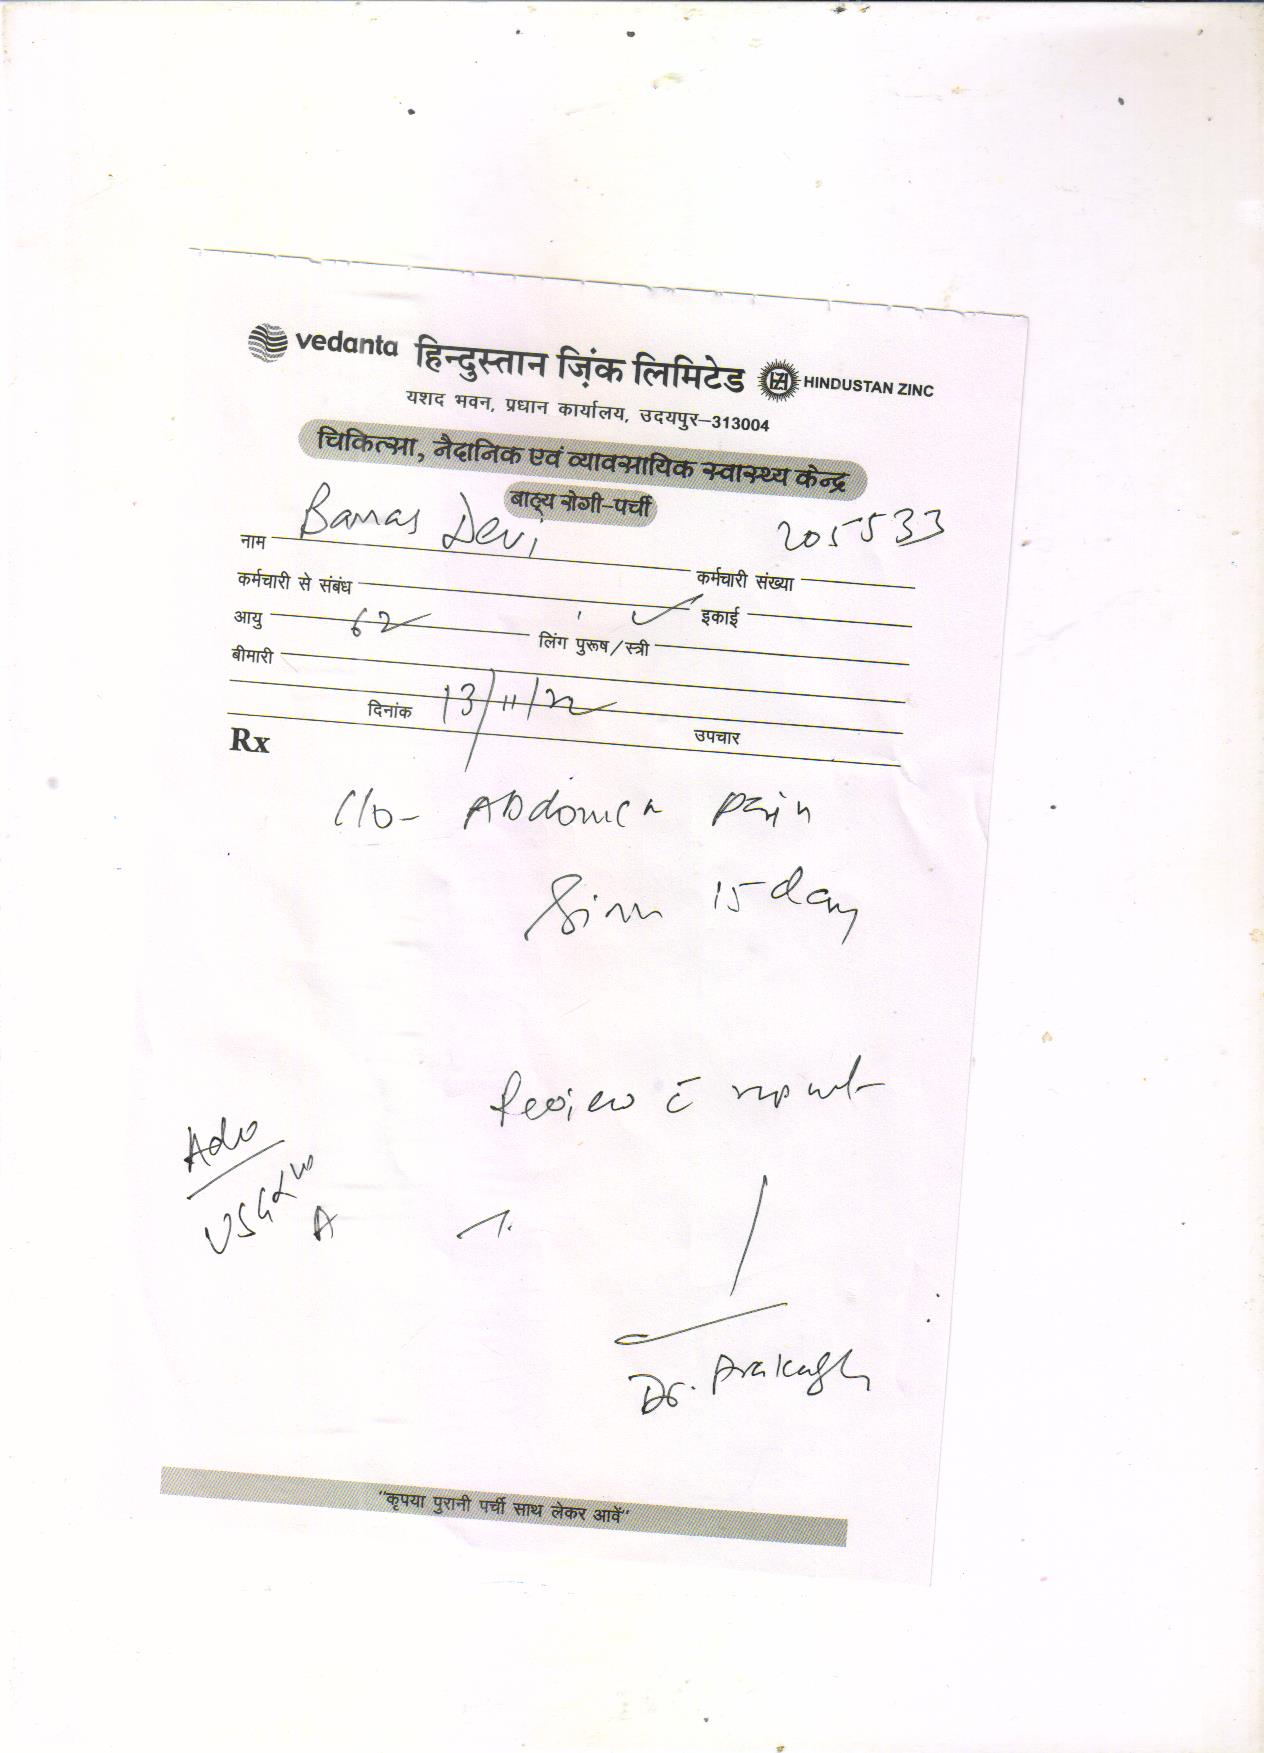 vedanta हिन्दुस्तान ज़िंक लिमिटेड HINDUSTAN ZINC
यशद भवन, प्रधान कार्यालय, उदयपुर–313004
चिकित्सा, नैदानिक एवं व्यावसायिक स्वास्थ्य केन्द्र
बाह्य रोगी-पर्ची
नाम Banas Devi कर्मचारी संख्या 205533
कर्मचारी से संबंध इकाई
आयु 62 लिंग पुरूष/स्त्री
बीमारी
दिनांक 13/11/22 उपचार
Rx
C/o- Abdomen pain
15 day
Review c̄ report
Adv
USG
A
Dr. Prakash
"कृपया पुरानी पर्ची साथ लेकर आवें"